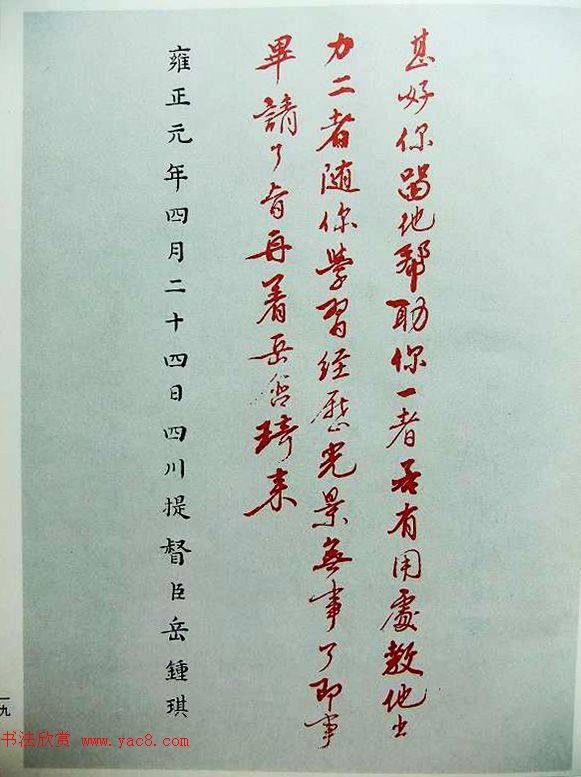 甚好你留他帮助你一者若有用處教他出
力二者随你學習經歷光景無事了即事
畢請了旨再著岳含琦来
雍正元年四月二十四日四川提督臣岳鍾琪
一九
书法欣赏 www.yac8.com